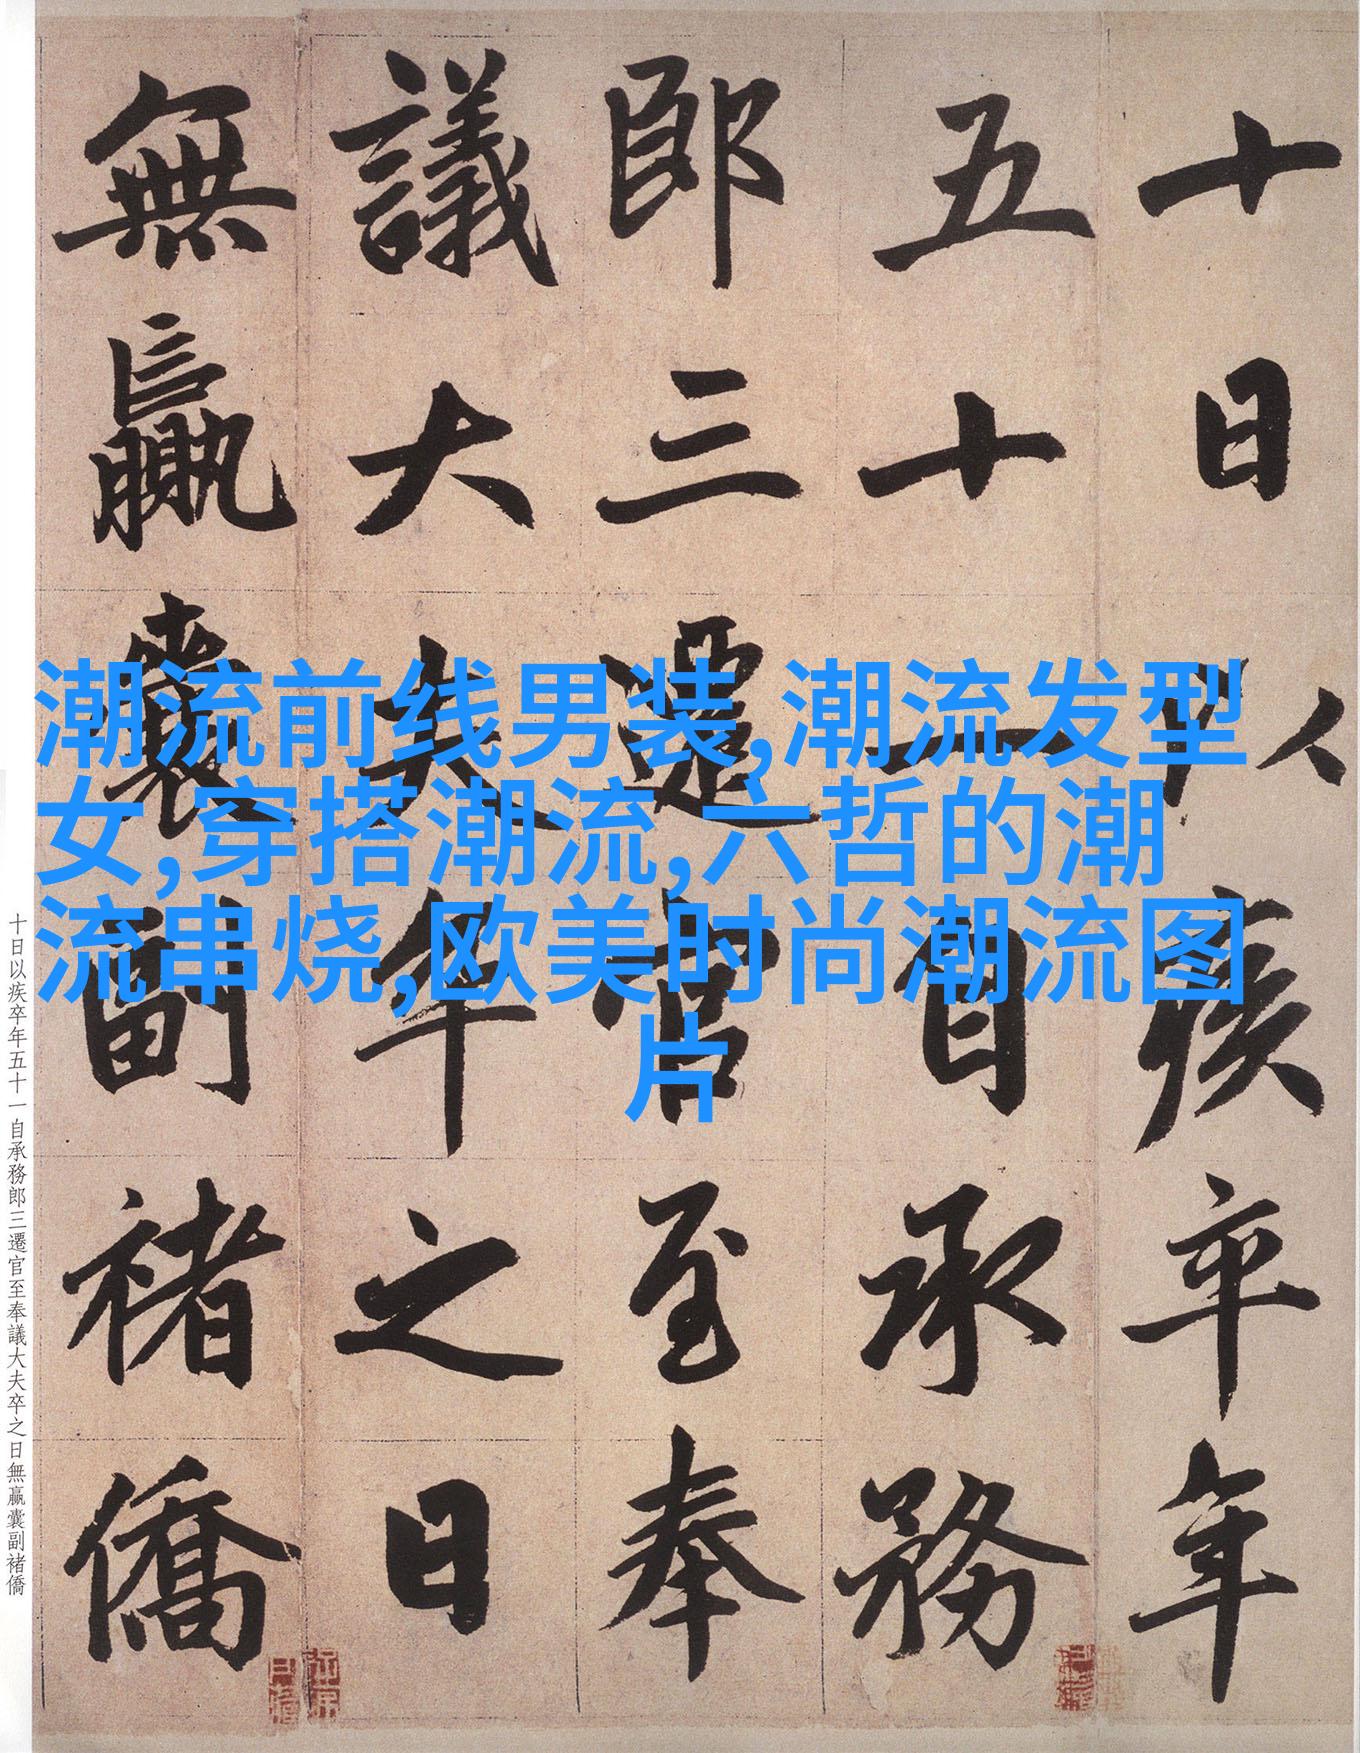 十日以疾卒年
五十一自承務
郎三遷官至奉
議大夫卒之日
無贏囊副褚僑
潮流前线男装,潮流发型
女,穿搭潮流,六哲的潮
流串烧,欧美时尚潮流图
片
十日以疾卒年五十一自承務郎三遷官至奉議大夫卒之日無贏囊副褚僑